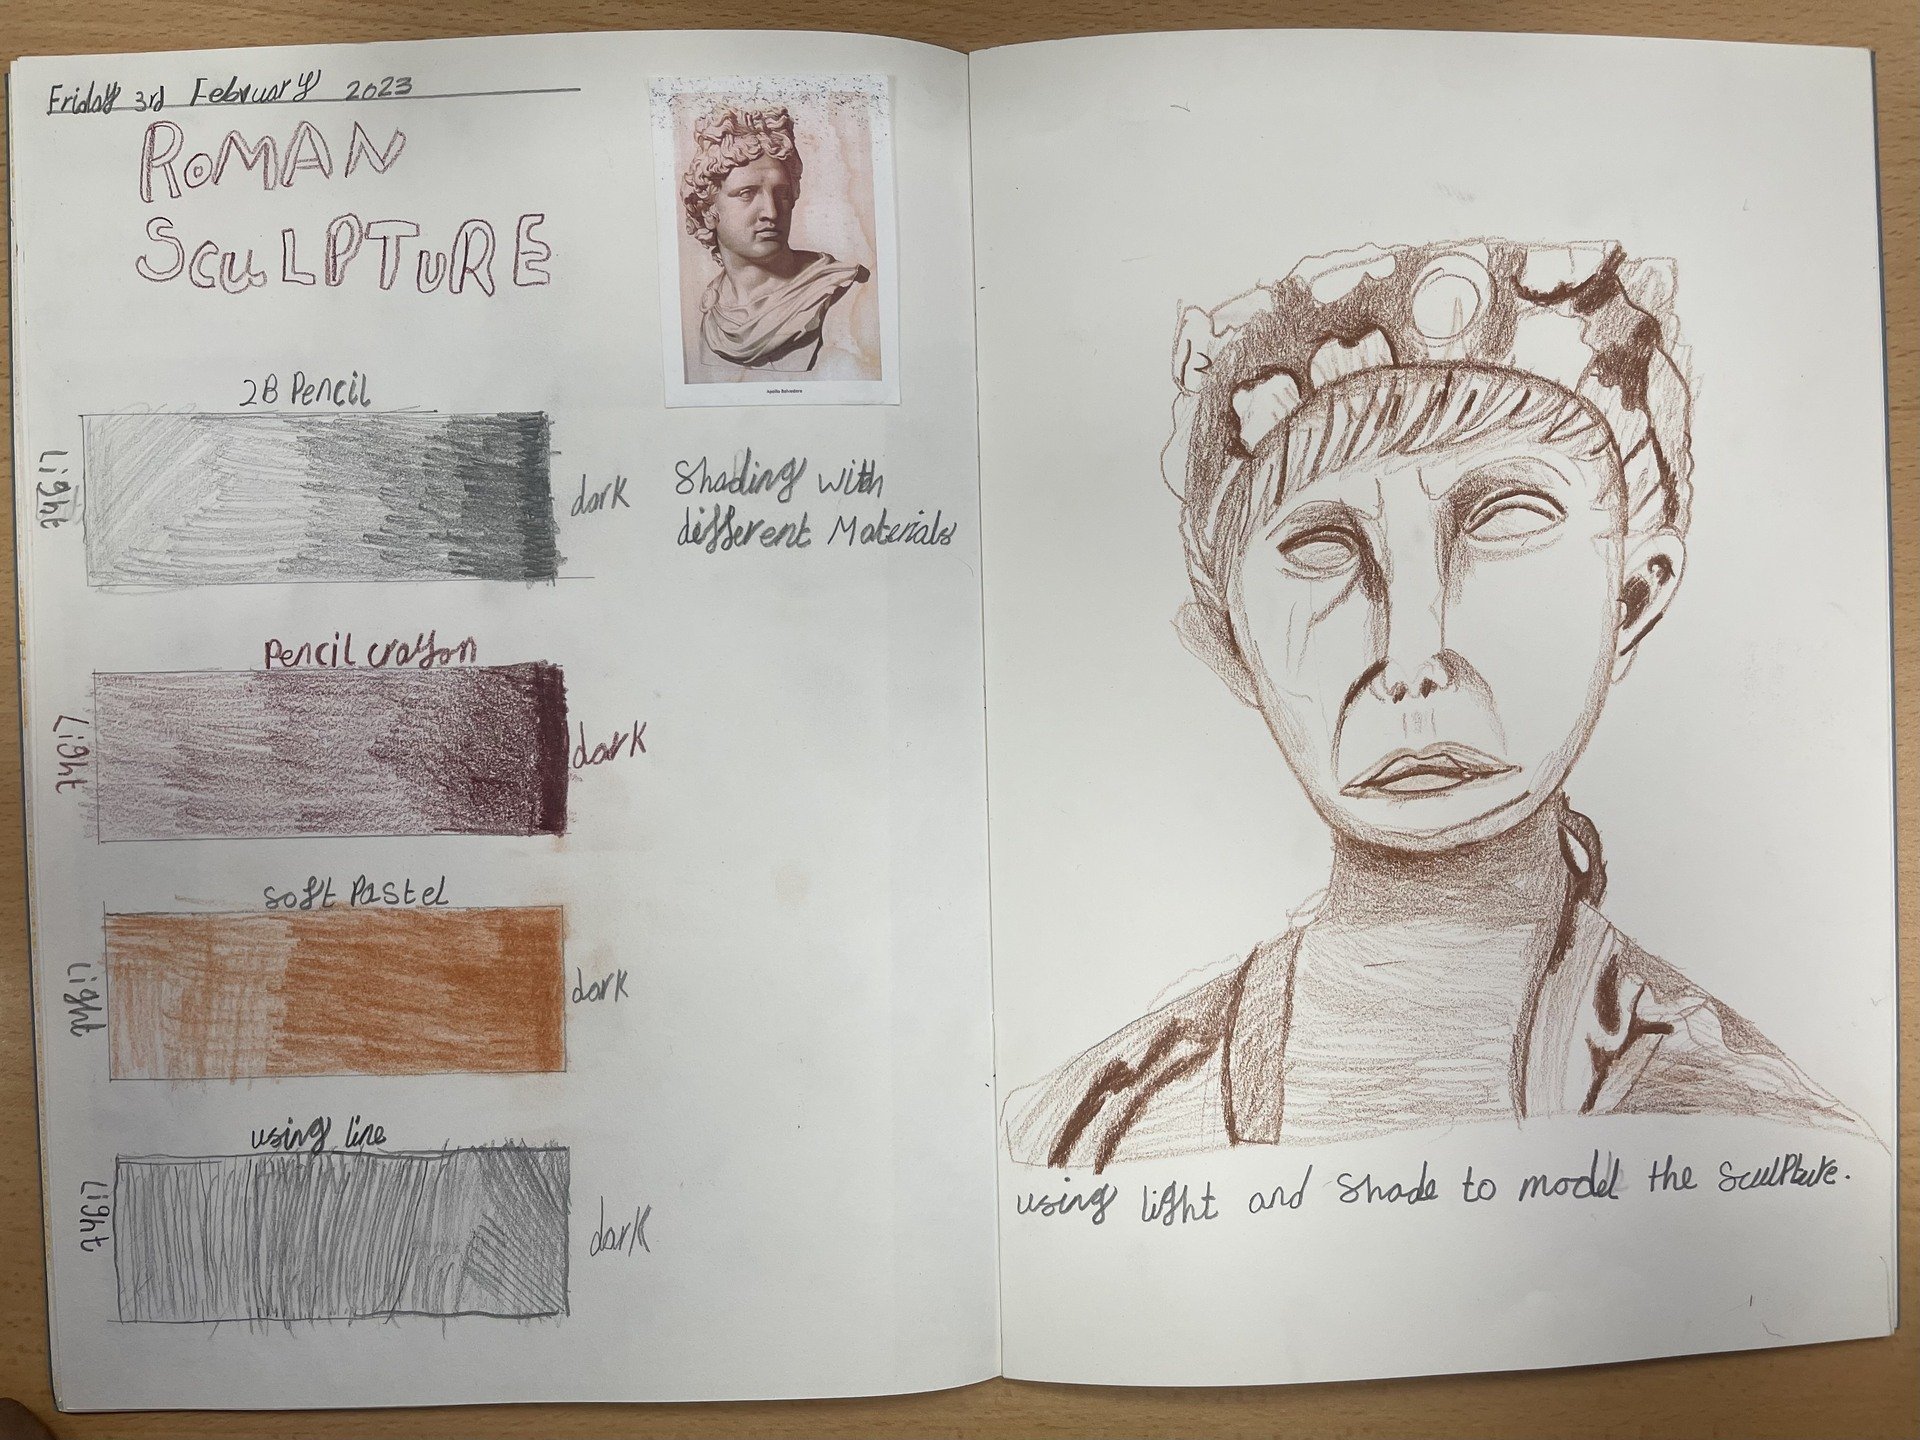 Friday 3rd February 2023
ROMAN
SCULPTURE
Apollo Belvedere
2B Pencil
Light
dark
Shading with
different Materials
Pencil crayon
Light
dark
soft Pastel
Light
dark
using line
Light
dark
using light and Shade to model the Sculpture.